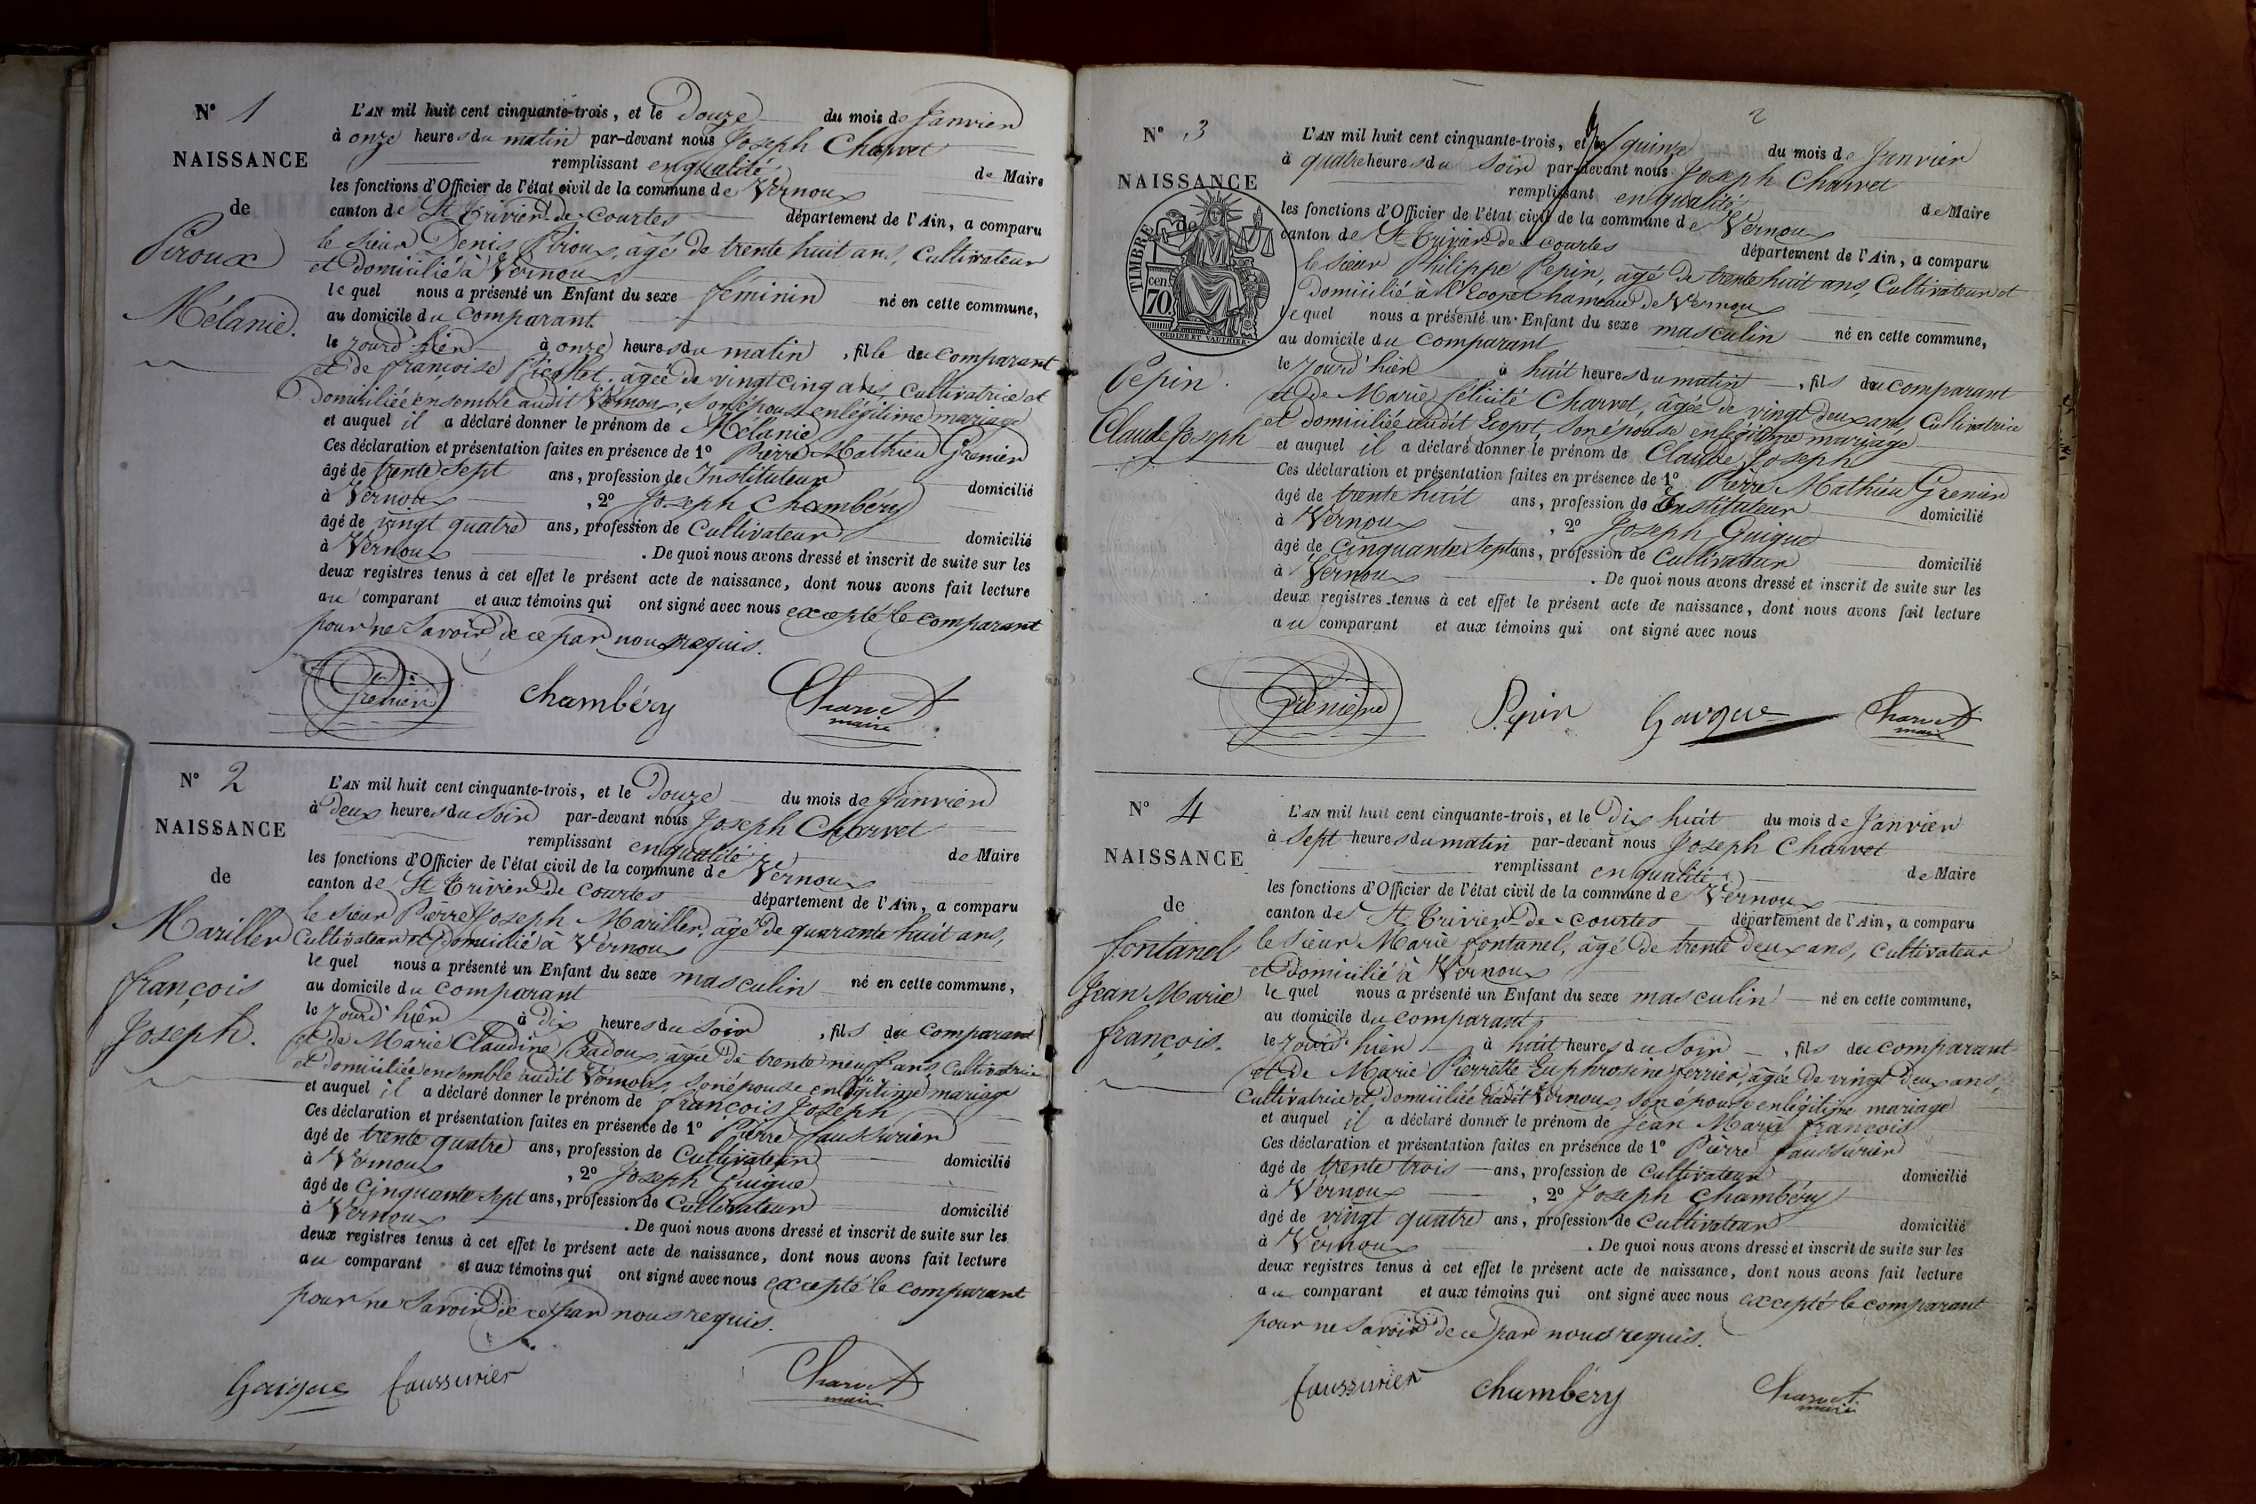 N° 1
NAISSANCE
de
Piroux
Mélanie.
L'AN mil huit cent cinquante-trois, et le Douze du mois de Janvier
à onze heures du matin par-devant nous Joseph Charvet
remplissant en qualité de Maire
les fonctions d'Officier de l'état civil de la commune de Vernoux
canton de St Trivier de Courtes département de l'Ain, a comparu
le sieur Denis Piroux, âgé de trente huit ans, Cultivateur
et domicilié à Vernoux
lequel nous a présenté un Enfant du sexe féminin né en cette commune,
au domicile du comparant
le jourd'hier à onze heures du matin, fille du comparant
et de françoise, âgée de vingt cinq ans, Cultivatrice et
domiciliée ensemble audit Vernoux, son épouse en légitime mariage
et auquel il a déclaré donner le prénom de Mélanie
Ces déclaration et présentation faites en présence de 1° Pierre Mathieu Grenier
âgé de trente sept ans, profession de Instituteur domicilié
à Vernoux, 2° Joseph Chambéry
âgé de vingt quatre ans, profession de Cultivateur domicilié
à Vernoux. De quoi nous avons dressé et inscrit de suite sur les
deux registres tenus à cet effet le présent acte de naissance, dont nous avons fait lecture
au comparant et aux témoins qui ont signé avec nous excepté le comparant
pour ne savoir de ce par nous requis.
Grenier Chambéry Charvet
maire
N° 2
NAISSANCE
de
Mariller
françois
Joseph.
L'AN mil huit cent cinquante-trois, et le Douze du mois de Janvier
à deux heures du soir par-devant nous Joseph Charvet
remplissant en qualité de Maire
les fonctions d'Officier de l'état civil de la commune de Vernoux
canton de St Trivier de Courtes département de l'Ain, a comparu
le sieur Pierre Joseph Mariller, âgé de quarante huit ans,
Cultivateur et domicilié à Vernoux
lequel nous a présenté un Enfant du sexe masculin né en cette commune,
au domicile du comparant
le jourd'hier à dix heures du soir, fils du comparant
et de Marie Claudine Badoux, âgée de trente neuf ans, Cultivatrice
et domiciliée ensemble audit Vernoux, son épouse en légitime mariage
et auquel il a déclaré donner le prénom de françois Joseph
Ces déclaration et présentation faites en présence de 1° Pierre faussurier
âgé de trente quatre ans, profession de Cultivateur domicilié
à Vernoux, 2° Joseph Guigue
âgé de cinquante sept ans, profession de Cultivateur domicilié
à Vernoux. De quoi nous avons dressé et inscrit de suite sur les
deux registres tenus à cet effet le présent acte de naissance, dont nous avons fait lecture
au comparant et aux témoins qui ont signé avec nous excepté le comparant
pour ne savoir de ce par nous requis.
Guigue faussurier Charvet
maire
2
N° 3
NAISSANCE
de
TIMBRE
70 cen
OUDINÉ ET VAUTHIER
Pepin.
Claude Joseph
L'AN mil huit cent cinquante-trois, et le quinze du mois de Janvier
à quatre heures du soir par-devant nous Joseph Charvet
remplissant en qualité de Maire
les fonctions d'Officier de l'état civil de la commune de Vernoux
canton de St Trivier de Courtes département de l'Ain, a comparu
le sieur Philippe Pepin, âgé de trente huit ans, Cultivateur et
domicilié à l'Ecopet hameau de Vernoux
lequel nous a présenté un Enfant du sexe masculin né en cette commune,
au domicile du comparant
le jourd'hier à huit heures du matin, fils du comparant
et de Marie félicité Charvet, âgée de vingt deux ans, Cultivatrice
et domiciliée audit Ecopet, son épouse en légitime mariage
et auquel il a déclaré donner le prénom de Claude Joseph
Ces déclaration et présentation faites en présence de 1° Pierre Mathieu Grenier
âgé de trente huit ans, profession de Instituteur domicilié
à Vernoux, 2° Joseph Guigue
âgé de cinquante sept ans, profession de Cultivateur domicilié
à Vernoux. De quoi nous avons dressé et inscrit de suite sur les
deux registres tenus à cet effet le présent acte de naissance, dont nous avons fait lecture
au comparant et aux témoins qui ont signé avec nous
Grenier Pepin Guigue Charvet
maire
N° 4
NAISSANCE
de
fontanel
Jean Marie
françois.
L'AN mil huit cent cinquante-trois, et le dix huit du mois de Janvier
à sept heures du matin par-devant nous Joseph Charvet
remplissant en qualité de Maire
les fonctions d'Officier de l'état civil de la commune de Vernoux
canton de St Trivier de Courtes département de l'Ain, a comparu
le sieur Marie fontanel, âgé de trente deux ans, Cultivateur
et domicilié à Vernoux
lequel nous a présenté un Enfant du sexe masculin né en cette commune,
au domicile du comparant
le jourd'hier à huit heures du soir, fils du comparant
et de Marie Pierrette Euphrosine ferrier, âgée de vingt deux ans,
Cultivatrice et domiciliée audit Vernoux, son épouse en légitime mariage
et auquel il a déclaré donner le prénom de Jean Marie françois
Ces déclaration et présentation faites en présence de 1° Pierre faussurier
âgé de trente trois ans, profession de Cultivateur domicilié
à Vernoux, 2° Joseph Chambéry
âgé de vingt quatre ans, profession de Cultivateur domicilié
à Vernoux. De quoi nous avons dressé et inscrit de suite sur les
deux registres tenus à cet effet le présent acte de naissance, dont nous avons fait lecture
au comparant et aux témoins qui ont signé avec nous excepté le comparant
pour ne savoir de ce par nous requis.
faussurier Chambéry Charvet
maire